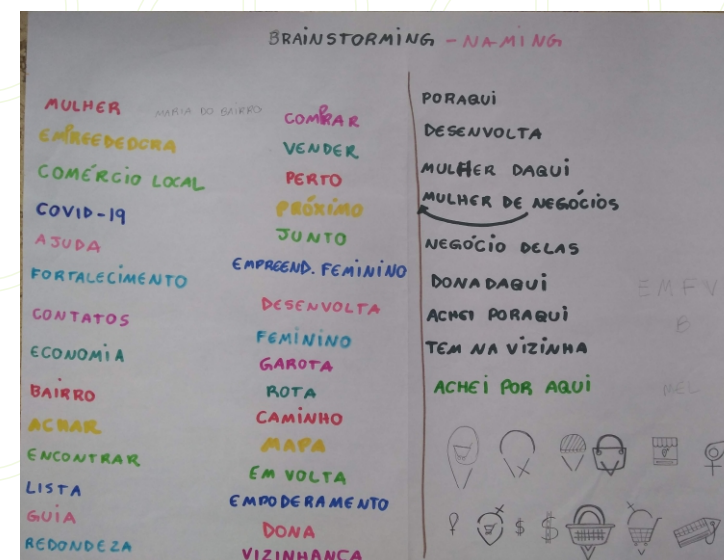 BRAINSTORMING - NAMING
MULHER
MARIA DO BAIRRO
EMPREEDEDORA
COMÉRCIO LOCAL
COVID-19
AJUDA
FORTALECIMENTO
CONTATOS
ECONOMIA
BAIRRO
ACHAR
ENCONTRAR
LISTA
GUIA
REDONDEZA
COMPRAR
VENDER
PERTO
PRÓXIMO
JUNTO
EMPREEND. FEMININO
DESENVOLTA
FEMININO
GAROTA
ROTA
CAMINHO
MAPA
EM VOLTA
EMPODERAMENTO
DONA
VIZINHANÇA
PORAQUI
DESENVOLTA
MULHER DAQUI
MULHER DE NEGÓCIOS
NEGÓCIO DELAS
DONADAQUI
ACHEI PORAQUI
TEM NA VIZINHA
ACHEI POR AQUI
EMFV
B
MEL
$ $